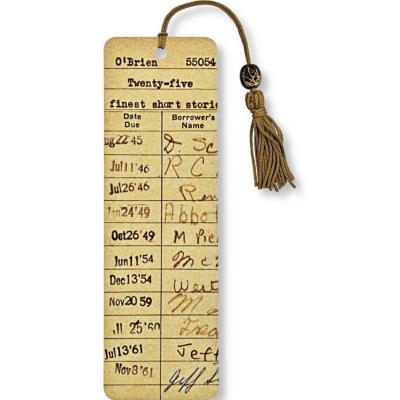 O'Brien 55054
Twenty-five
finest short storie
Date Due Borrower's Name
ug 22'45 D. Sc
Jul 11'46 R C
Jul 26'46
Jan 24'49 Abbo
Oct 26'49 M Pie
Jun 11'54 McN
Dec 13'54 West
Nov 20 59 M
Jl 25'60
Jul 13'61 Jeff
Nov 8'61 Jeff